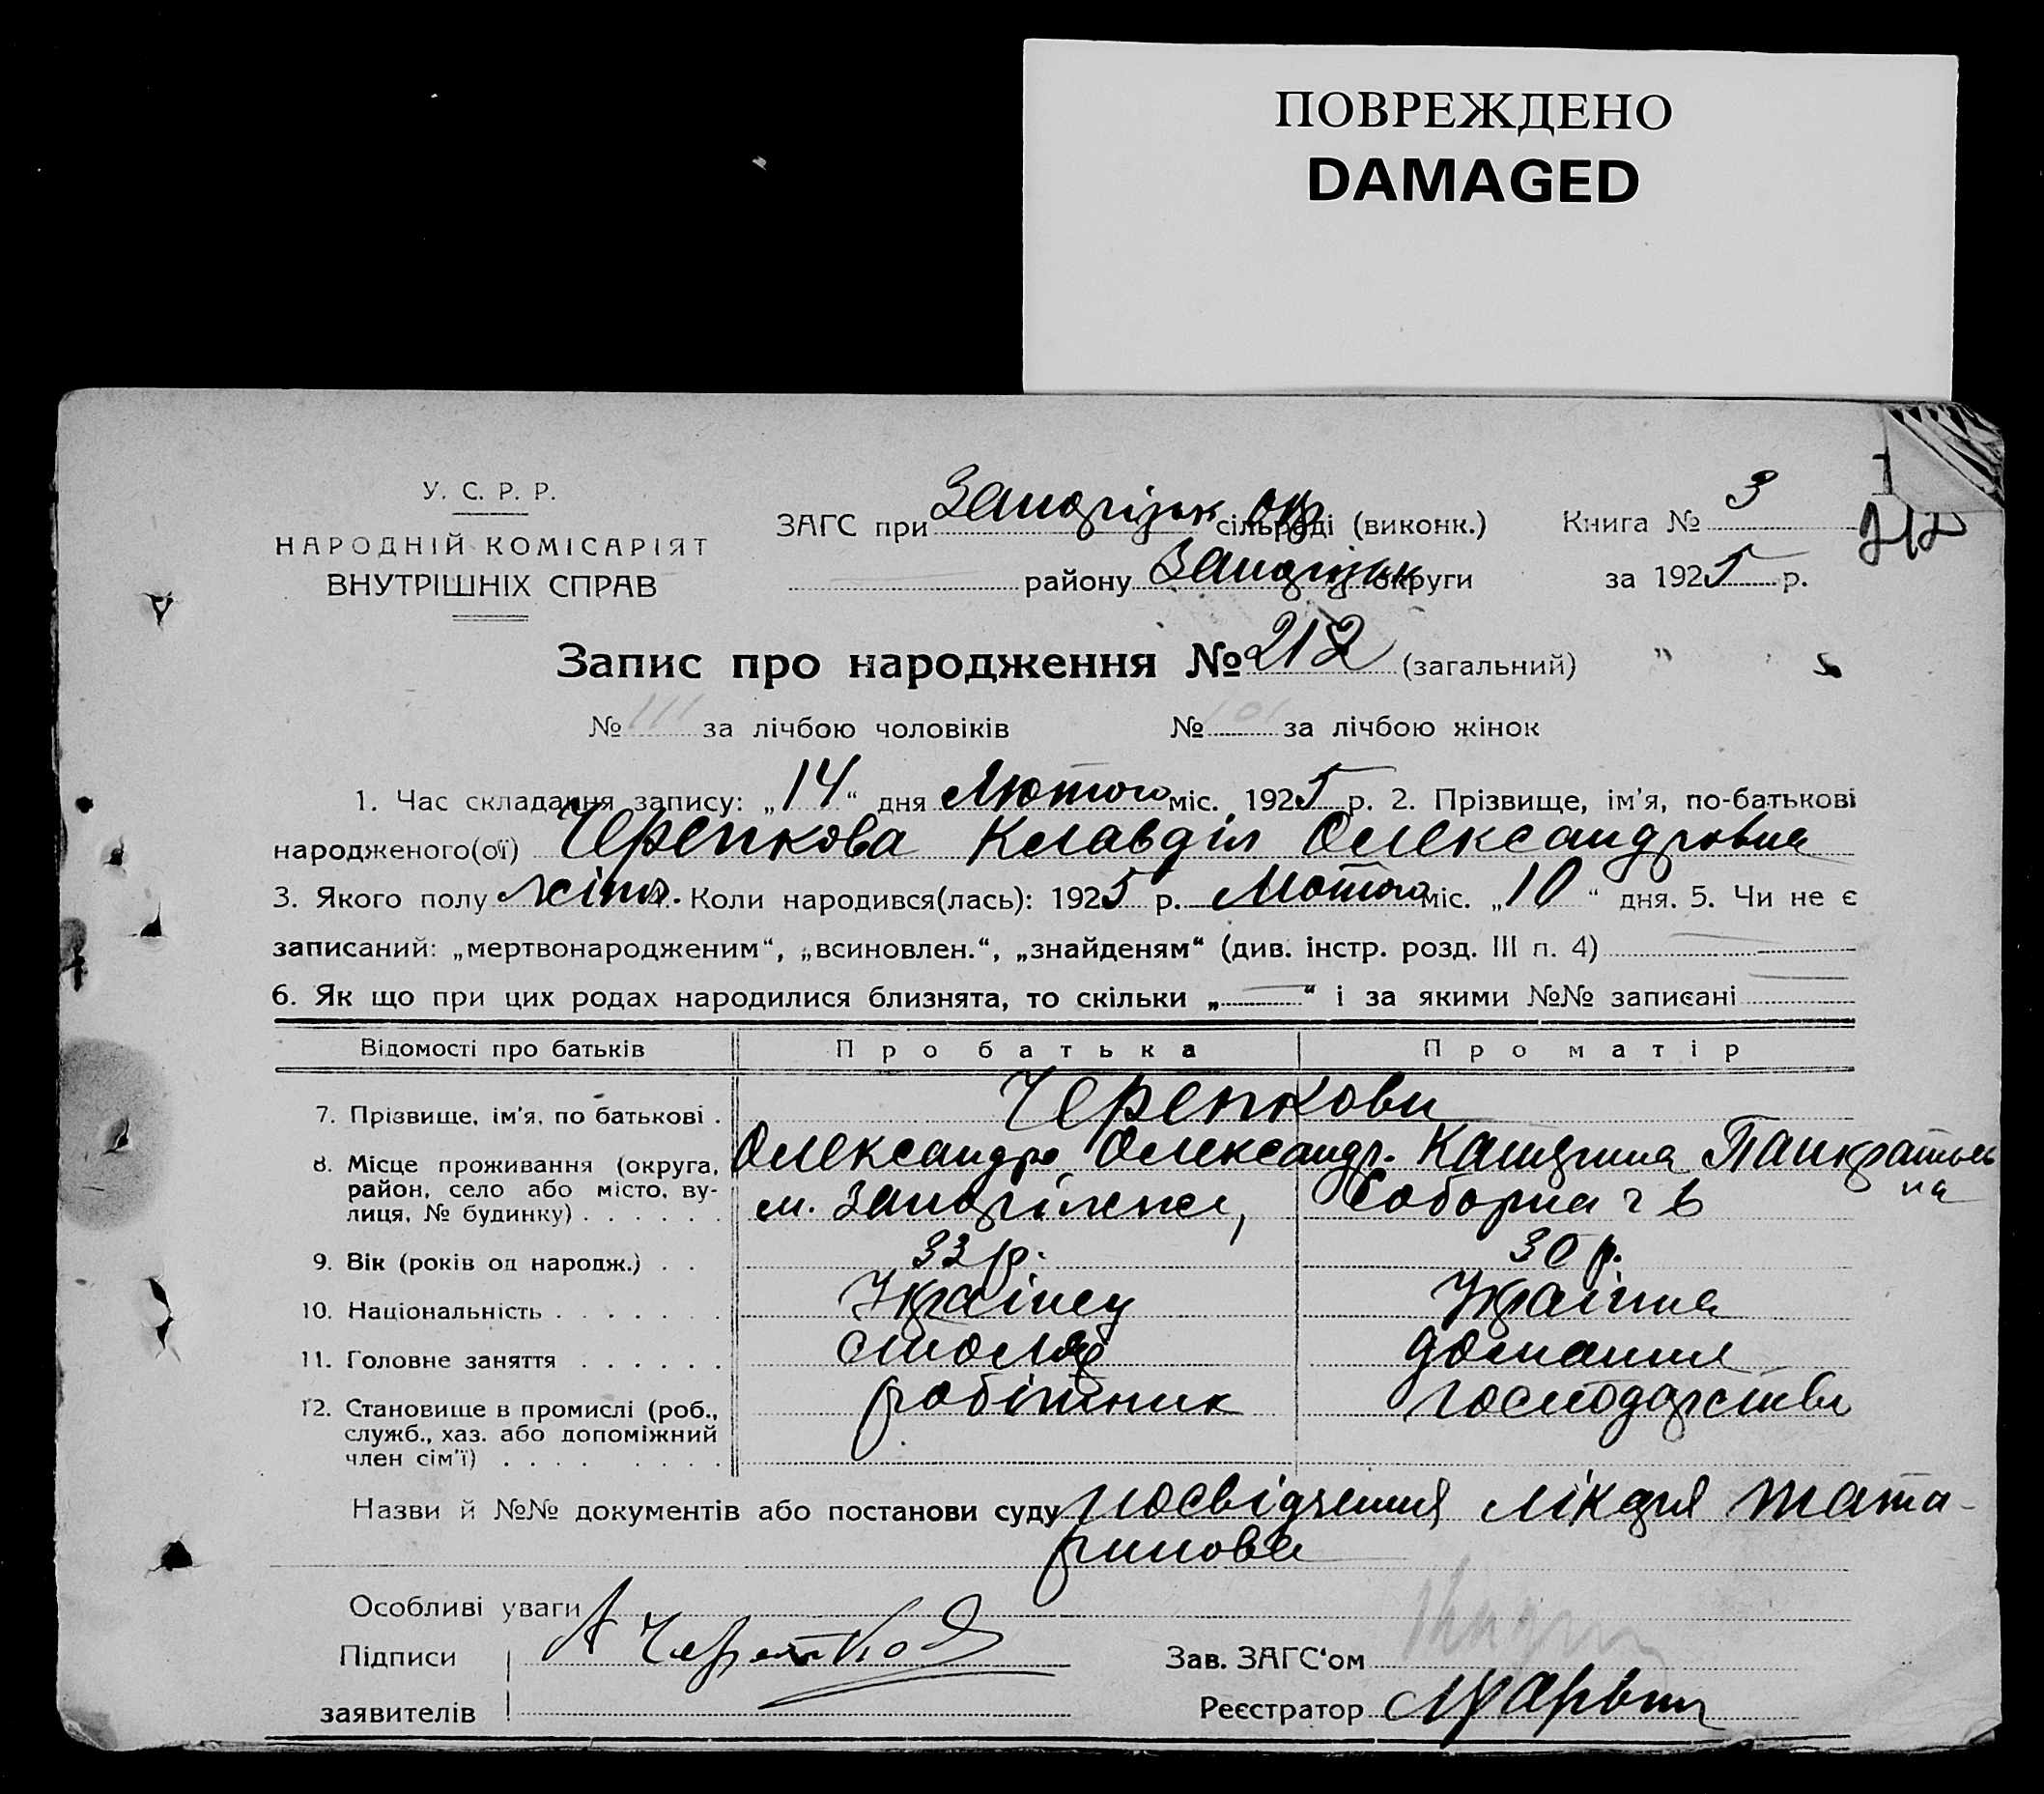 ПОВРЕЖДЕНО
DAMAGED
У. С. Р. Р.
НАРОДНІЙ КОМІСАРІЯТ
ВНУТРІШНІХ СПРАВ
ЗАГС при Запорізьк окр сільраді (виконк.)
району Запорізьк округи
Книга № 3
212
за 1925 р.
Запис про народження № 212 (загальний)
№ 111 за лічбою чоловіків № 101 за лічбою жінок
1. Час складання запису: „14“ дня Лютого міс. 1925 р. 2. Прізвище, ім'я, по-батькові
народженого(ої) Черепкова Клавдія Олександровна
3. Якого полу жіноч. Коли народився(лась): 1925 р. Лютого міс. „10“ дня. 5. Чи не є
записаний: „мертвонародженим“, „всиновлен.“, „знайденям“ (див. інстр. розд. III п. 4)
6. Як що при цих родах народилися близнята, то скільки „ “ і за якими №№ записані
Відомості про батьків Про батька Про матір
7. Прізвище, ім'я, по батькові . Черепкови
Олександро Олександр. Катерина Панкратьев
на
8. Місце проживання (округа,
район, село або місто, ву-
лиця, № будинку) . . . . . . м. Запоріжжя, Соборна ч 6
9. Вік (років од народж.) . . 33 р. 30 р.
10. Національність . . . . . . . Українец Українка
11. Головне заняття . . . . . . столяр домашнє
12. Становище в промислі (роб., робітник господарство
служб., хаз. або допоміжний
член сім'ї) . . . . . . . . .
Назви й №№ документів або постанови суду посвідчення лікаря Тата-
ринова
Особливі уваги
Підписи А Черепков
заявителів
Зав. ЗАГС'ом
Реєстратор